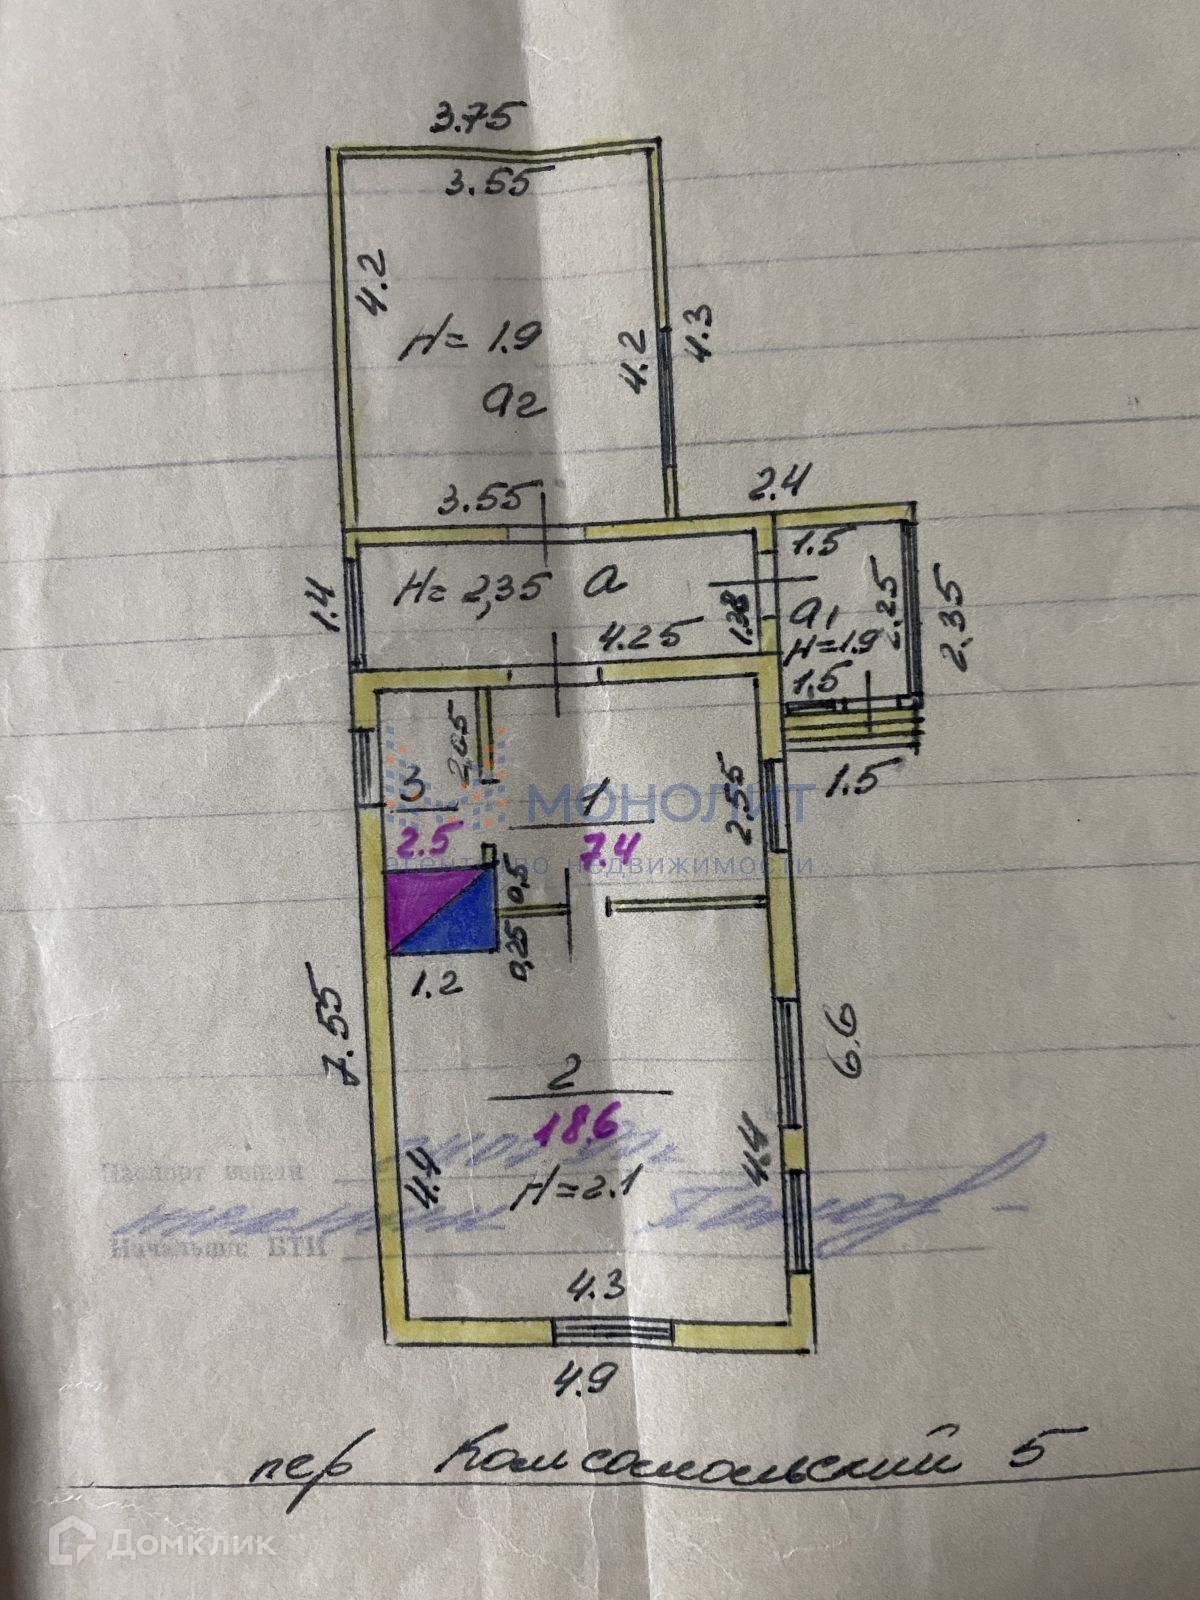 3.75
3.55
4.2
H= 1.9
4.2
4.3
a2
3.55
2.4
1.5
1.4
H= 2,35 a
4.25
1.38
a1
2.25
2.35
H=1.9
1.5
1.5
2,05
3
2.5
1
7.4
2.55
МОНОЛИТ
агентство недвижимости
0,5
0,25
1.2
7.55
6.6
2
18.6
H=2.1
4.4
4.4
Паспорт выдан
Начальник БТИ
4.3
4.9
пер Комсомольский 5
Домклик